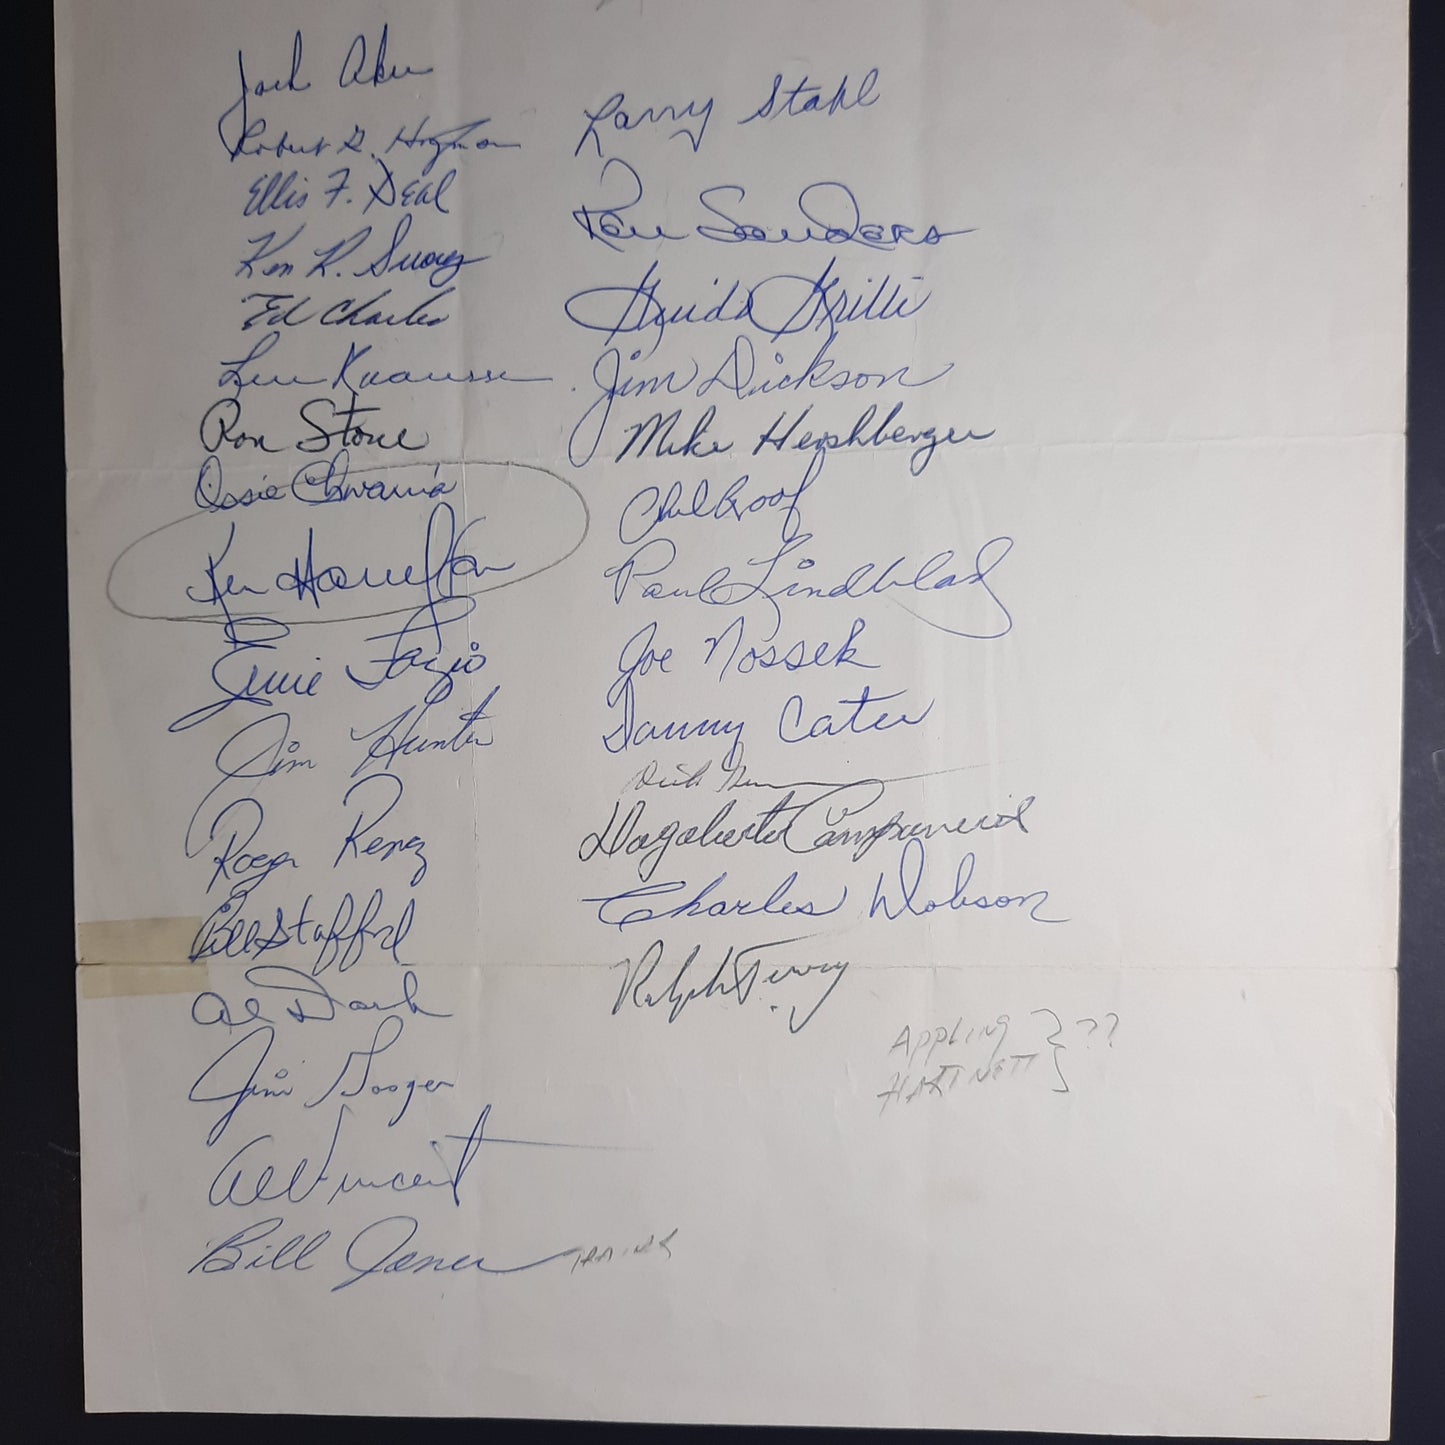 Jack Aker
Robert G.
Ellis F. Deal
Ken R. Suarez
Ed Charles
Lew Krausse
Ron Stone
Ossie Chavarria
Ken Harrelson
Ernie Fazio
Jim Hunter
Roger Repoz
Bill Stafford
Al Dark
Jim Gosger
Al Vincent
Bill Jones TRAINER
Larry Stahl
Ken Sanders
Guido Grilli
Jim Dickson
Mike Hershberger
Phil Roof
Paul Lindblad
Joe Nossek
Danny Cater
Dick
Dagoberto Campaneris
Charles Dobson
Ralph Terry
APPLING
HARTNETT } ??